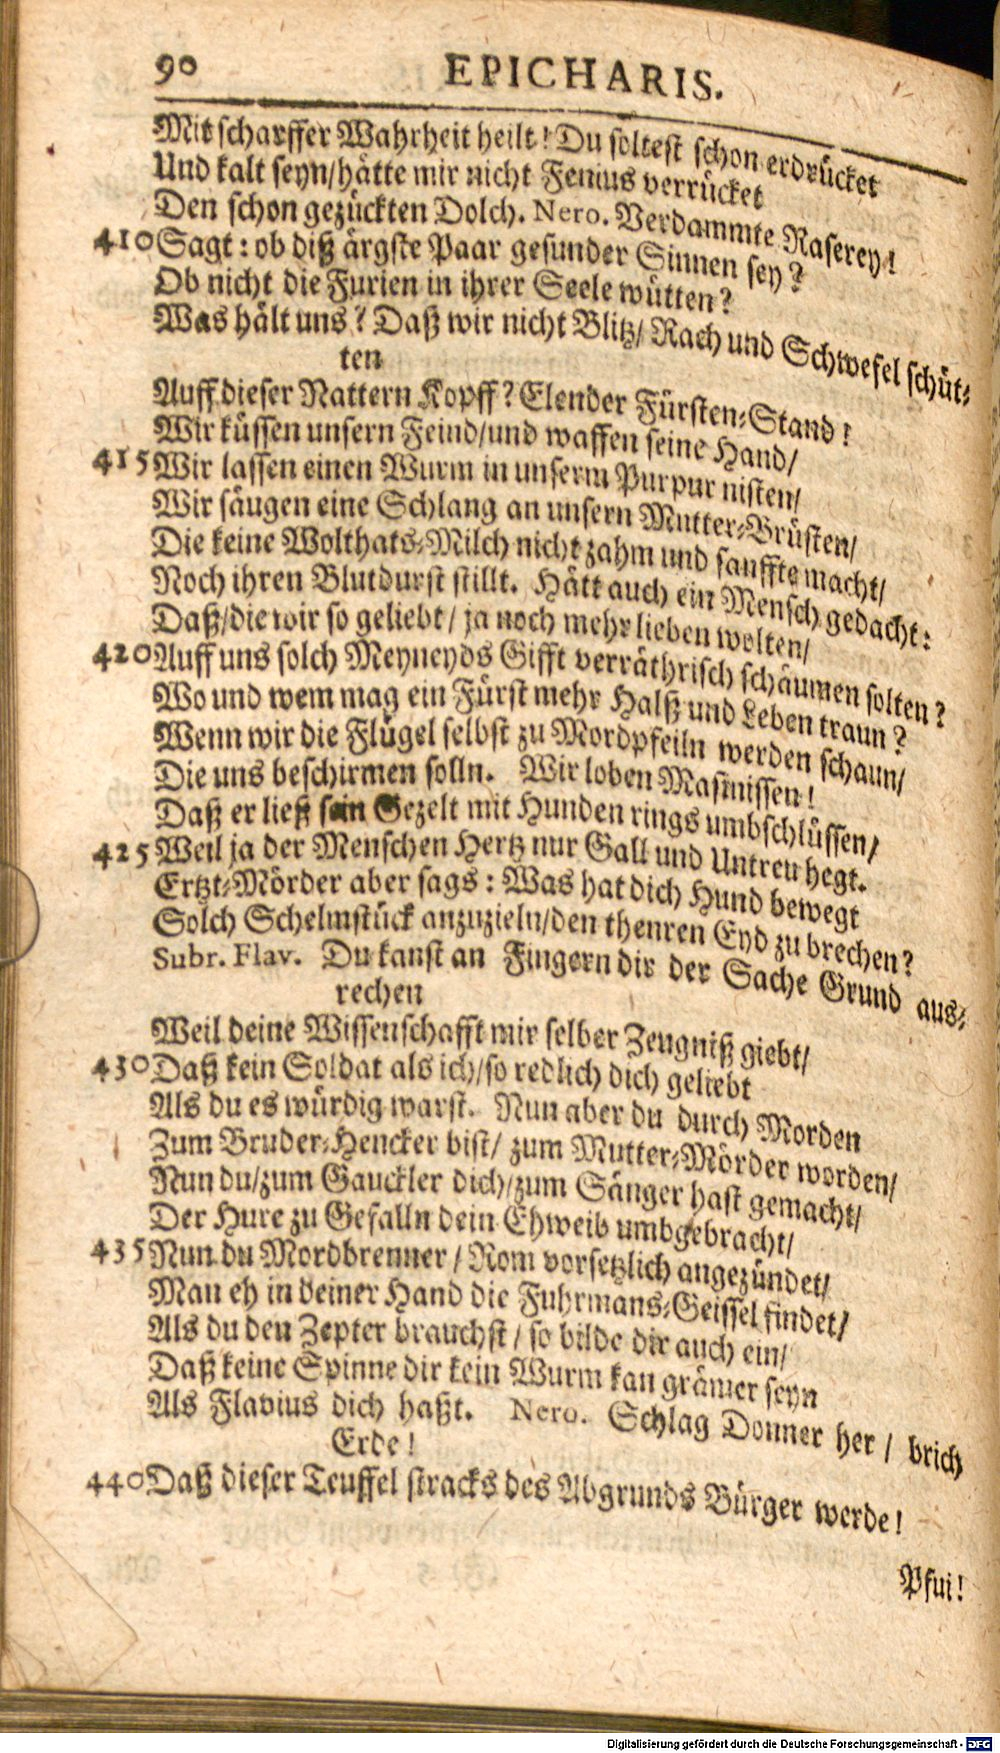 90 EPICHARIS.
Mit scharffer Wahrheit heilt! Du soltest schon erdrücket
Und kalt seyn/hätte mir nicht Fenius verrücket
Den schon gezückten Dolch. Nero. Verdammte Raserey!
410 Sagt: ob diß ärgste Paar gesunder Sinnen sey?
Ob nicht die Furien in ihrer Seele wütten?
Was hält uns? Daß wir nicht Blitz/ Rach und Schwefel schüt-
ten
Auff dieser Nattern Kopff? Elender Fürsten-Stand!
Wir küssen unsern Feind/und waffen seine Hand/
415 Wir lassen einen Wurm in unserm Purpur nisten/
Wir säugen eine Schlang an unsern Mutter-Brüsten/
Die keine Wolthats-Milch nicht zahm und sanffte macht/
Noch ihren Blutdurst stillt. Hätt auch ein Mensch gedacht:
Daß/die wir so geliebt/ ja noch mehr lieben wolten/
420 Auff uns solch Meyneyds Gifft verräthrisch schäumen solten?
Wo und wem mag ein Fürst mehr Halß und Leben traun?
Wenn wir die Flügel selbst zu Mordpfeiln werden schaun/
Die uns beschirmen solln. Wir loben Masinissen!
Daß er ließ sein Gezelt mit Hunden rings umbschlüssen/
425 Weil ja der Menschen Hertz nur Gall und Untreu hegt.
Ertzt-Mörder aber sags: Was hat dich Hund bewegt
Solch Schelmstück anzuzieln/den theuren Eyd zu brechen?
Subr. Flav. Du kanst an Fingern dir der Sache Grund aus-
rechen
Weil deine Wissenschafft mir selber Zeugniß giebt/
430 Daß kein Soldat als ich/so redlich dich geliebt
Als du es würdig warst. Nun aber du durch Morden
Zum Bruder-Hencker bist/ zum Mutter-Mörder worden/
Nun du/zum Gauckler dich/zum Sänger hast gemacht/
Der Hure zu Gefalln dein Ehweib umbgebracht/
435 Nun du Mordbrenner/ Rom vorsetzlich angezündet/
Man eh in deiner Hand die Fuhrmans-Geissel findet/
Als du den Zepter brauchst/ so bilde dir auch ein/
Daß keine Spinne dir kein Wurm kan grämer seyn
Als Flavius dich haßt. Nero. Schlag Donner her/ brich
Erde!
440 Daß dieser Teuffel stracks des Abgrunds Bürger werde!
Pfui!
Digitalisierung gefördert durch die Deutsche Forschungsgemeinschaft - DFG